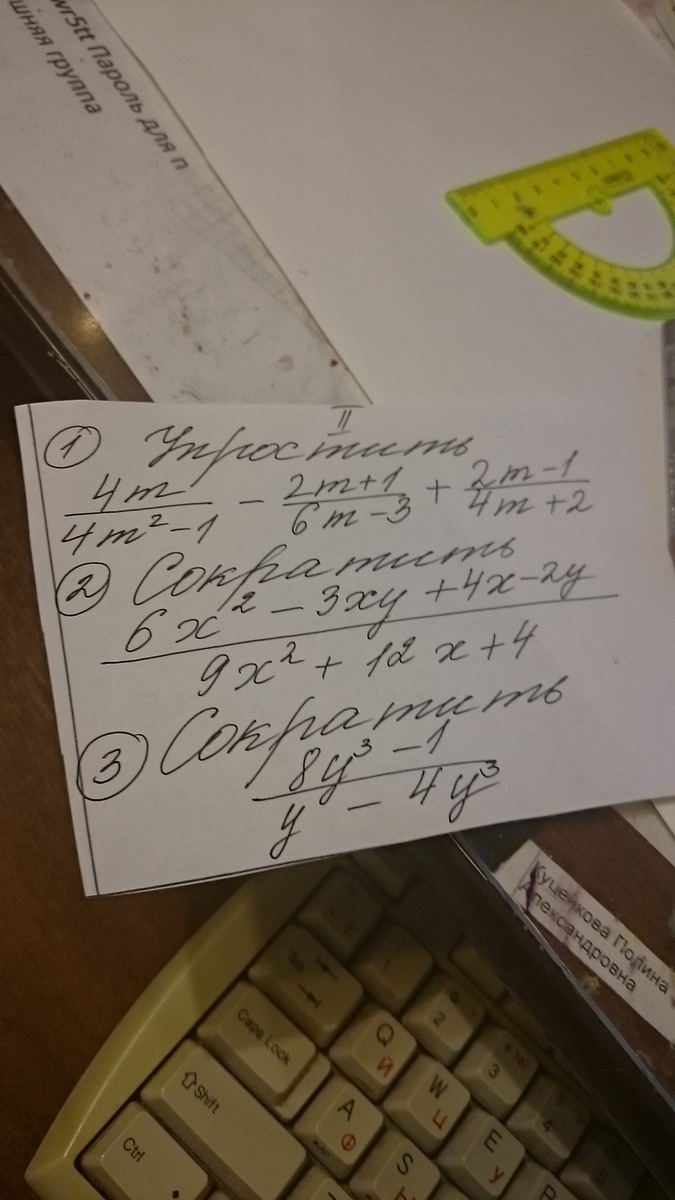 wr5tt Пароль для п
шняя группа
II
① Упростить
4m/(4m² - 1) - (2m+1)/(6m-3) + (2m-1)/(4m+2)
② Сократить
(6x² - 3xy + 4x - 2y)/(9x² + 12x + 4)
③ Сократить
(8y³ - 1)/(y - 4y³)
Куценкова Полина
Александровна
Caps Lock
Shift
Ctrl
1
2
3
4
Q Й
W Ц
E У
A Ф
S Ы